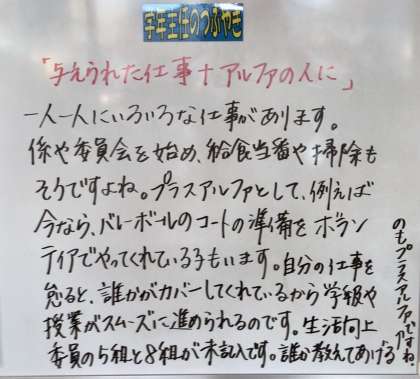 学年主任のつぶやき
「与えられた仕事＋アルファの人に」
一人一人にいろいろな仕事があります。
係や委員会を始め、給食当番や掃除も
そうですよね。プラスアルファとして、例えば
今なら、バレーボールのコートの準備をボラン
ティアでやってくれている子もいます。自分の仕事を
怠ると、誰かがカバーしてくれているから学級や
授業がスムーズに進められるのです。生活向上
委員の5組と8組が未記入です。誰か教えてあげる
のもプラスアルファですね。